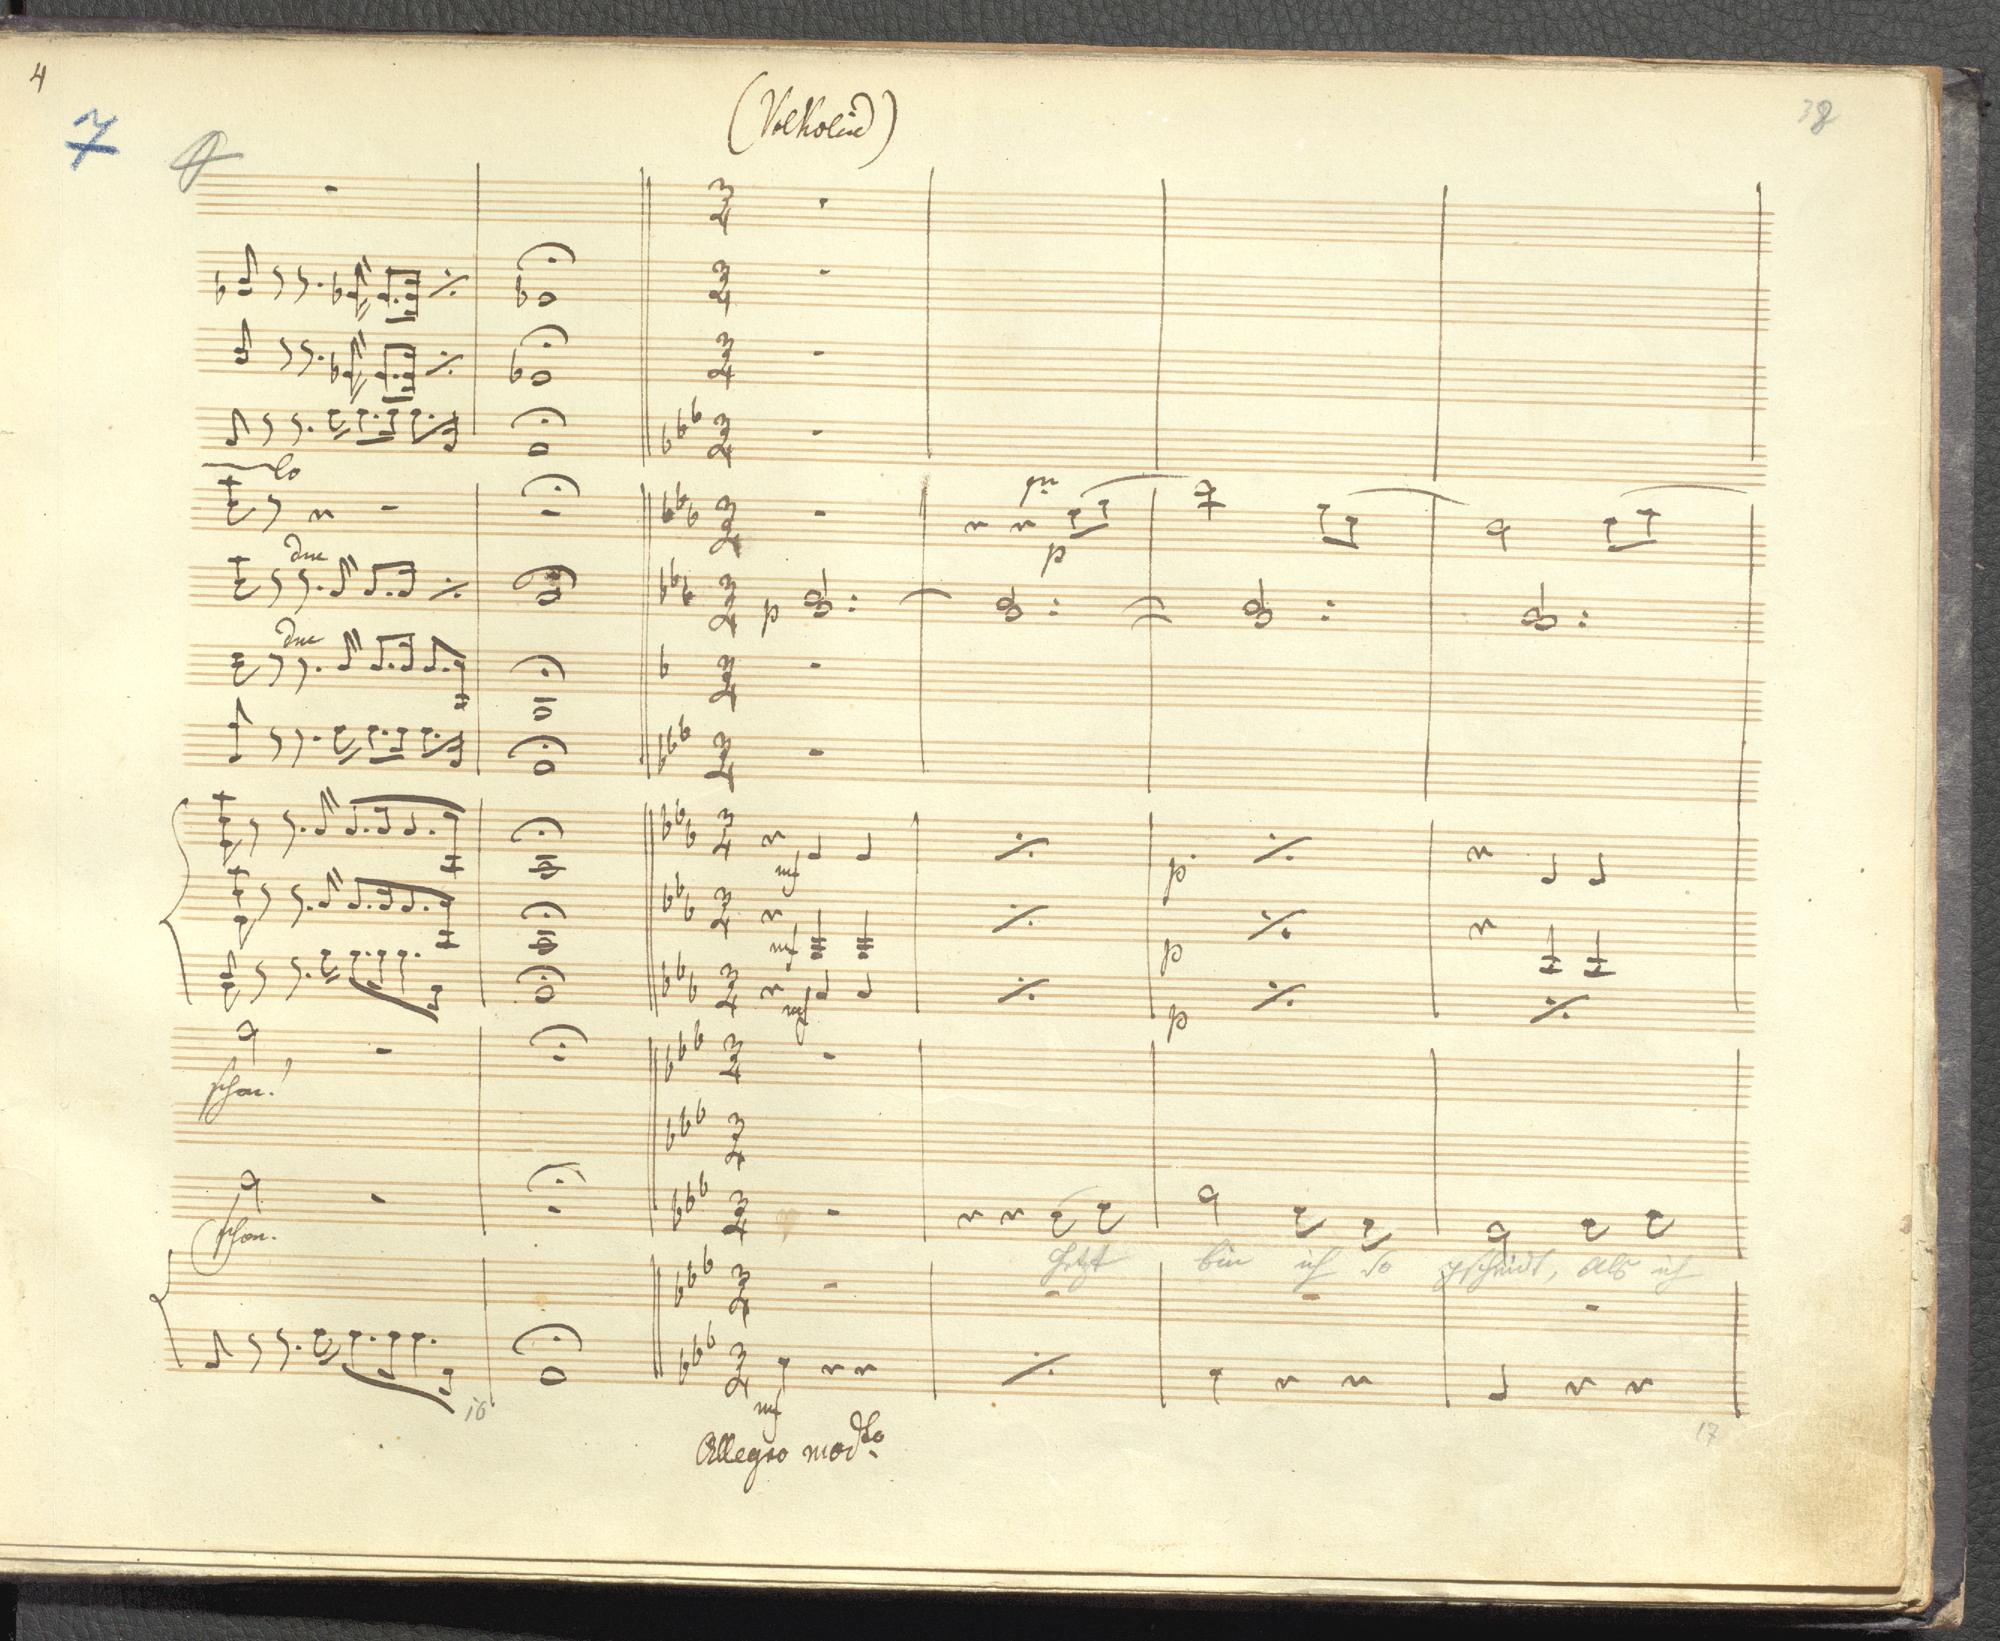 4
7
38
(Volkslied)
lo
due
due
p
p
mf
p
mf
p
mf
p
schön!
schön.
Jetzt bin ich so gscheidt, als ich
mf
16
17
Allegro modto.